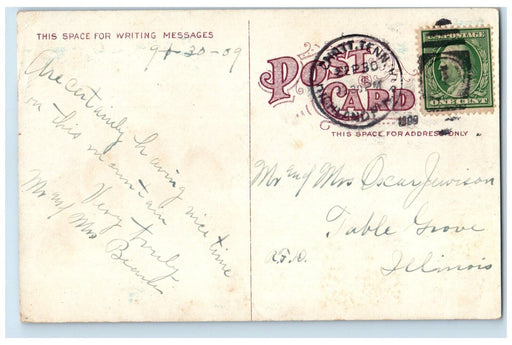 THIS SPACE FOR WRITING MESSAGES
9-30-09
Are certainly having nice time
on this mountain
Very truly
Mr and Mrs
POST
CARD
THIS SPACE FOR ADDRESS ONLY
CHATT. TENN.
1909
U.S. POSTAGE
ONE CENT
Mr and Mrs Oscar Jewison
Table Grove
R.F.D.
Illinois